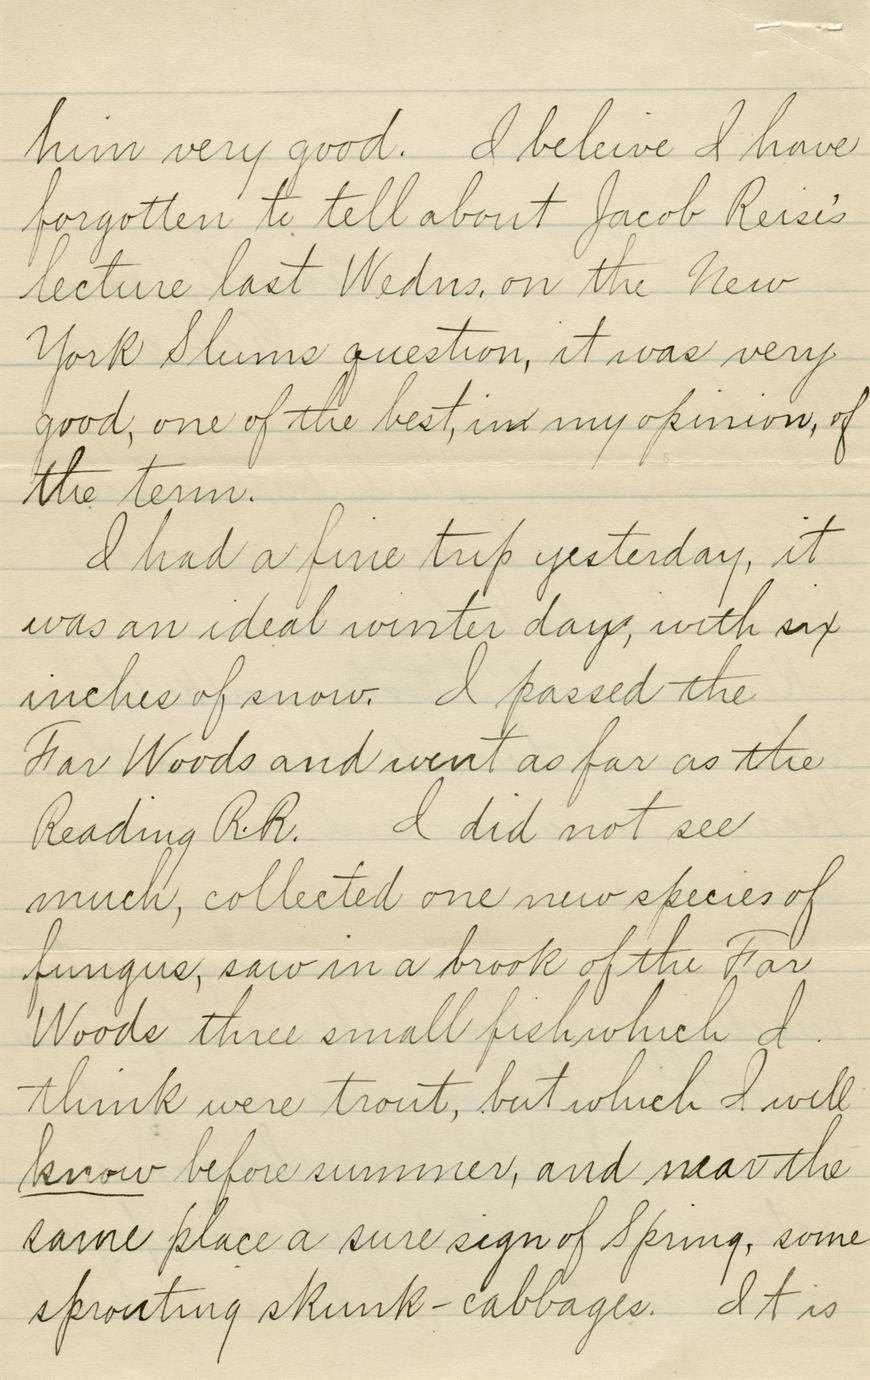 him very good. I beleive I have
forgotten to tell about Jacob Reisi's
lecture last Wedns. on the New
York Slums question, it was very
good, one of the best, in my opinion, of
the term.
I had a fine trip yesterday, it
was an ideal winter day, with six
inches of snow. I passed the
Far Woods and went as far as the
Reading R.R. I did not see
much, collected one new species of
fungus, saw in a brook of the Far
Woods three small fish which I
think were trout, but which I will
know before summer, and near the
same place a sure sign of Spring, some
sprouting skunk-cabbages. It is